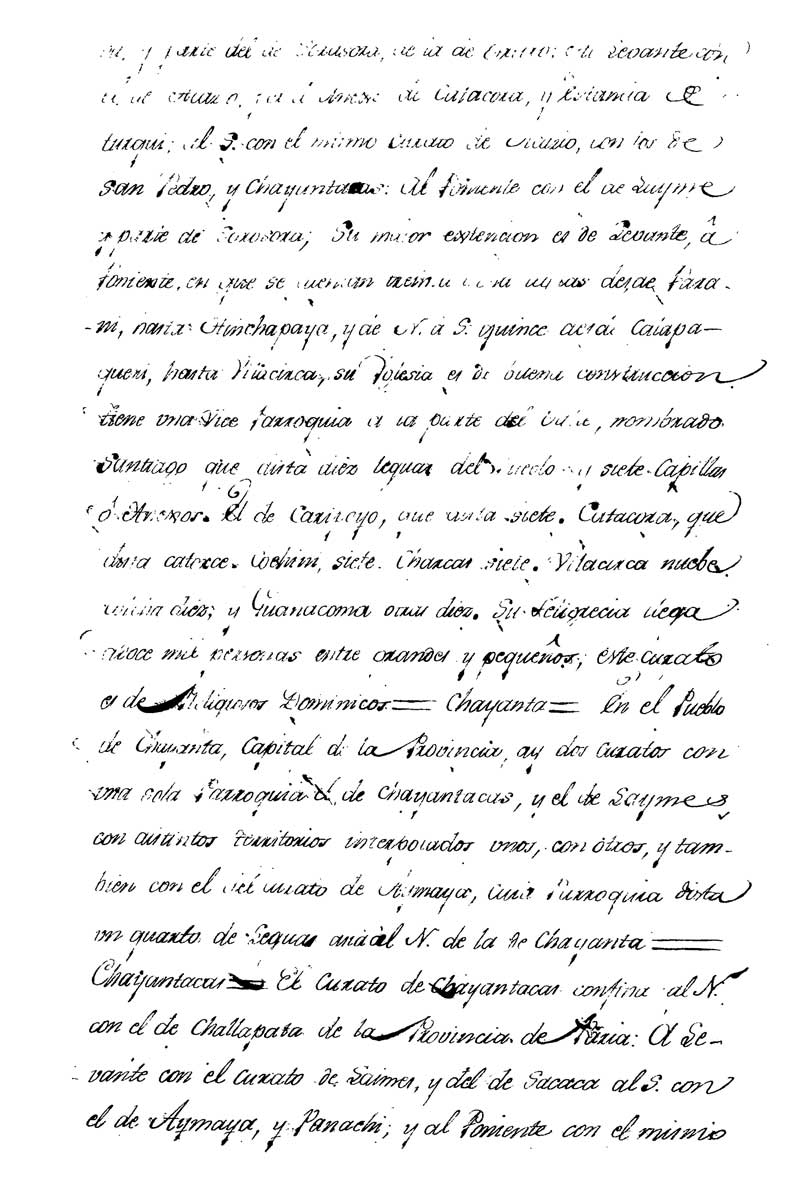 y parte del de de la de Levante con
de Cutacora, y Estancia de
turqui; al S. con el mismo Curato de con los de
San Pedro, y Chayantacas: Al Poniente con el de Layme
y parte de Sorosora; Su maior extencion es de Levante, â
Poniente, en que se cuentan desde Para-
-ni, hasta Chinchapaya, y de N. a S. quince desde Caiapa-
queri, hasta Vilacirca, su Yglesia es de buena construccion
tiene una Vice Parroquia a la parte del nombrado
Santiago que dista diez leguas del Pueblo y siete Capillas
ó Anexos. El de Caripoyo, que dista siete. Cutacora, que
dista catorce. Cochini, siete. Charcas siete. Vilacirca nuebe
diez; y Guanacoma otras diez. Su Feligrecia llega
a doce mil personas entre grandes y pequeños; este curato
es de Religiosos Dominicos = Chayanta = En el Pueblo
de Chayanta, Capital de la Provincia, ay dos Curatos con
una sola Parroquia el de Chayantacas, y el de Laymes,
con distintos Territorios interpolados unos, con otros, y tam-
bien con el del curato de Aymaya, cuia Parroquia dista
un quarto de Leguas acia el N. de la de Chayanta =
Chayantacas = El Curato de Chayantacas confina al N.
con el de Challapata de la Provincia de Paria: A Le-
vante con el Curato de Laimes, y del de Sacaca al S. con
el de Aymaya, y Panachi; y al Poniente con el mismo